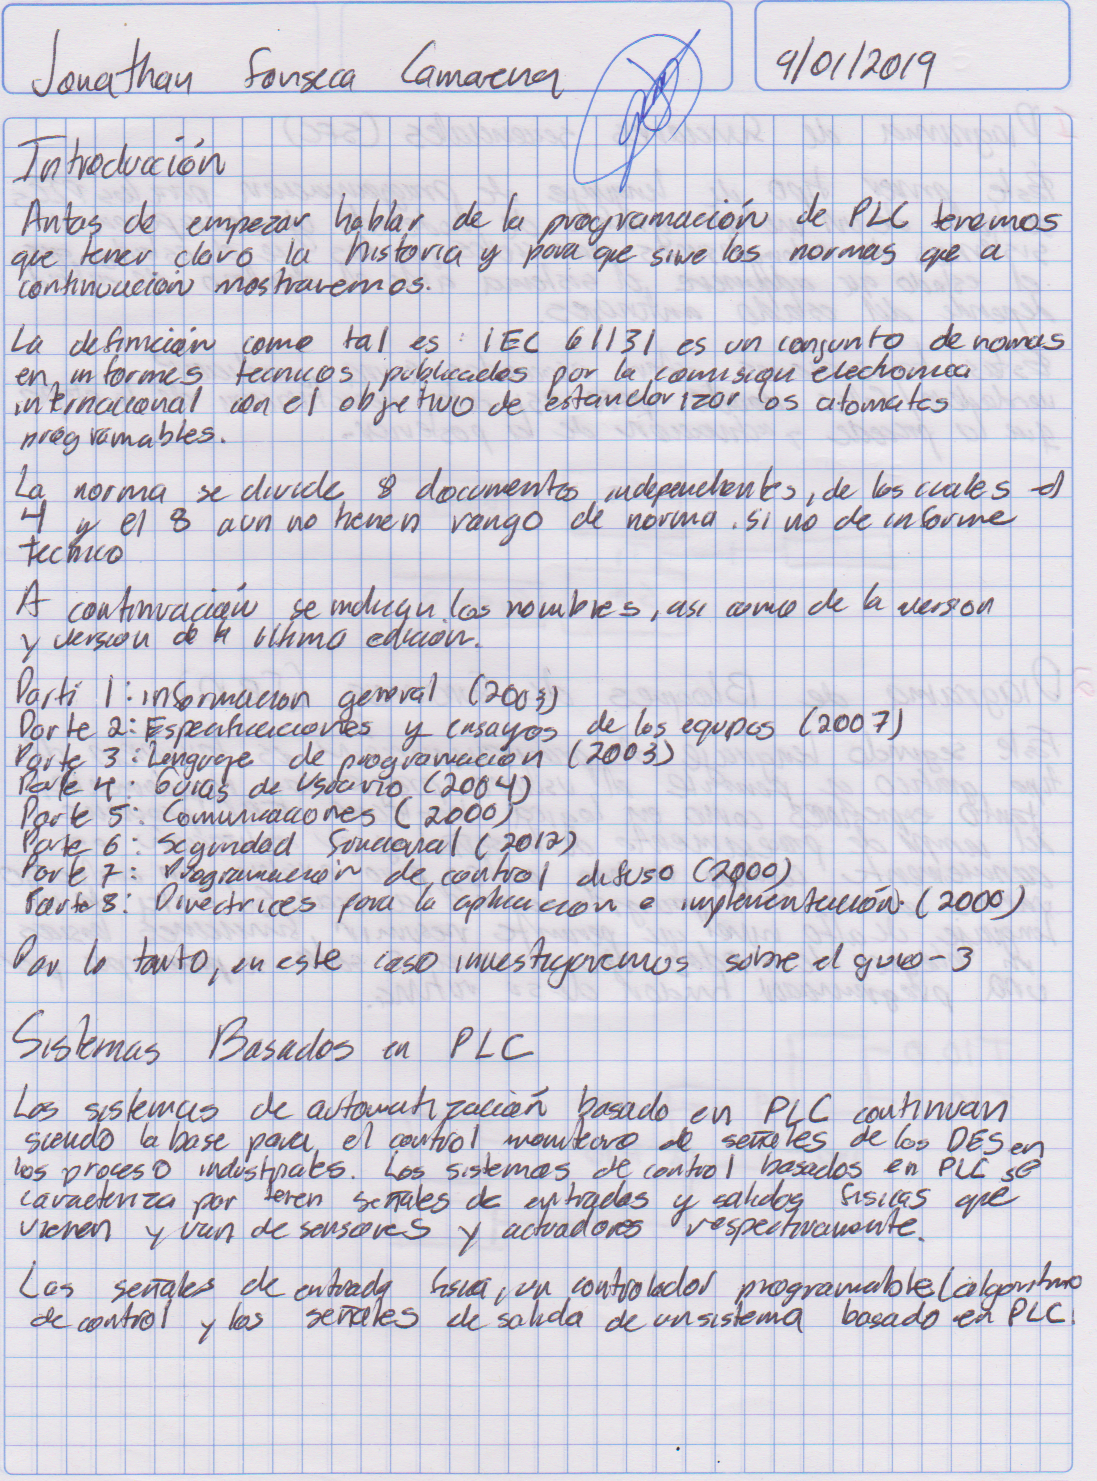 Jonathan Fonseca Camarena
9/01/2019
Introducción
Antas de empezar hablar de la programación de PLC tenemos
que tener claro la historia y para que sirve las normas que a
continuación mostraremos.
La definición como tal es: IEC 61131 es un conjunto de normas
en informes tecnicos publicados por la comision electronica
internacional con el objetivo de estandarizar los atomatas
programables.
La norma se divide 8 documentos independientes, de los cuales el
4 y el 8 aun no tienen rango de norma. si no de informe
tecnico
A continuación se indican los nombres, asi como de la version
y version de la ultima edicion.
Parti 1: informacion general (2003)
Parte 2: Especificaciones y ensayos de los equipos (2007)
Parte 3: Lenguaje de programación (2003)
Parte 4: Guias de Usuario (2004)
Parte 5: Comunicaciones (2000)
Parte 6: Seguridad funcional (2012)
Parte 7: Programación de control difuso (2000)
Parte 8: Directrices para la aplicacion e implementación. (2000)
Por lo tanto, en este caso investigaremos sobre el -3
Sistemas Basados en PLC
Los sistemas de automatización basado en PLC continuan
siendo la base para el control monitoreo de señales de los DES en
los proceso industriales. Los sistemas de control basados en PLC se
caracteriza por tener señales de entradas y salidas fisicas que
vienen y van de sensores y actuadores respectivamente.
Las señales de entrada fisica, un controlador programable (algoritmo
de control y las señales de salida de un sistema basado en PLC.